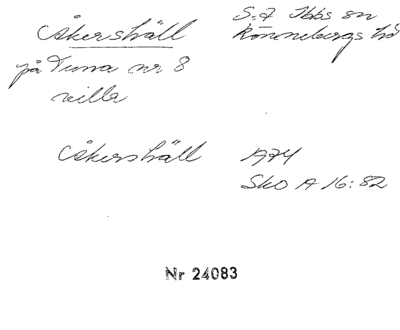 Åkershäll
S:t Ibbs sn
Rönnebergs hd
på Tuna nr 8
villa
Åkershäll 1974
Sko A 16:82
Nr 24083